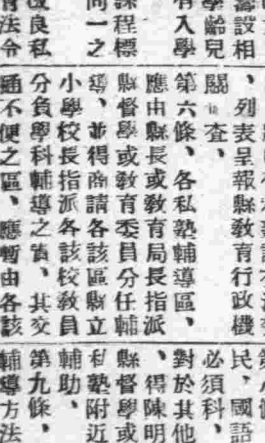 籌設相
學齡兒
有入學
課程標
同一之
改良私
育法令
、列表呈報縣敎育行政機
關 查、
第六條、各私塾輔導區、
應由縣長或敎育局長指派
縣督學或敎育委員分任輔
導、並得商請各該區縣立
小學校長指派各該校敎員
分負學科輔導之責、其交
通不便之區、應暫由各該
民、國語
必須科、
對於其他
、得陳明
縣督學或
私塾附近
輔助、
第九條、
輔導方法